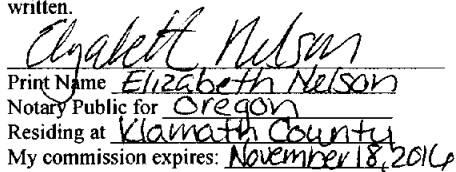 written.
Elizabeth Nelson
Print Name Elizabeth Nelson
Notary Public for Oregon
Residing at Klamath County
My commission expires: November 18, 2016